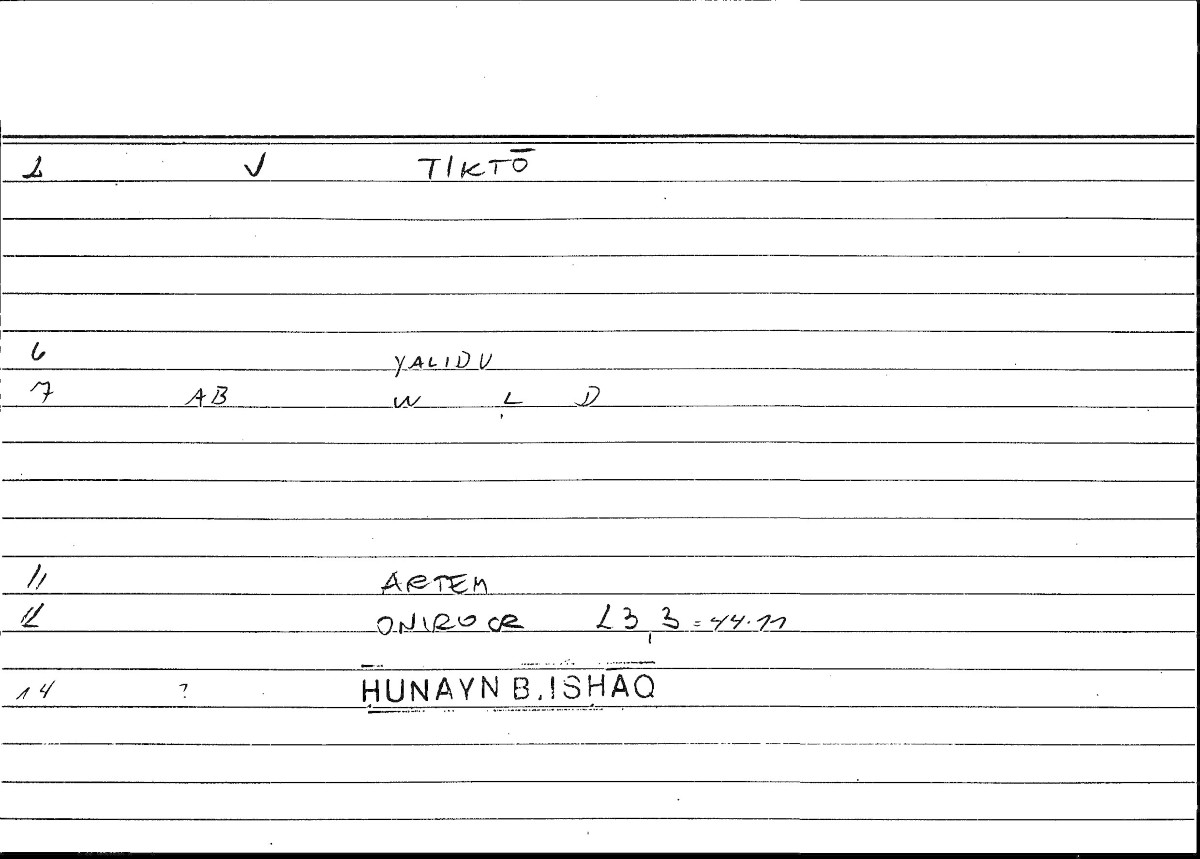 1 V TIKTŌ
6 YALIDU
7 AB W L D
11 ARTEM
12 ONIROCR 23,3=44.11
14 ? ḤUNAYN B.ISḤĀQ